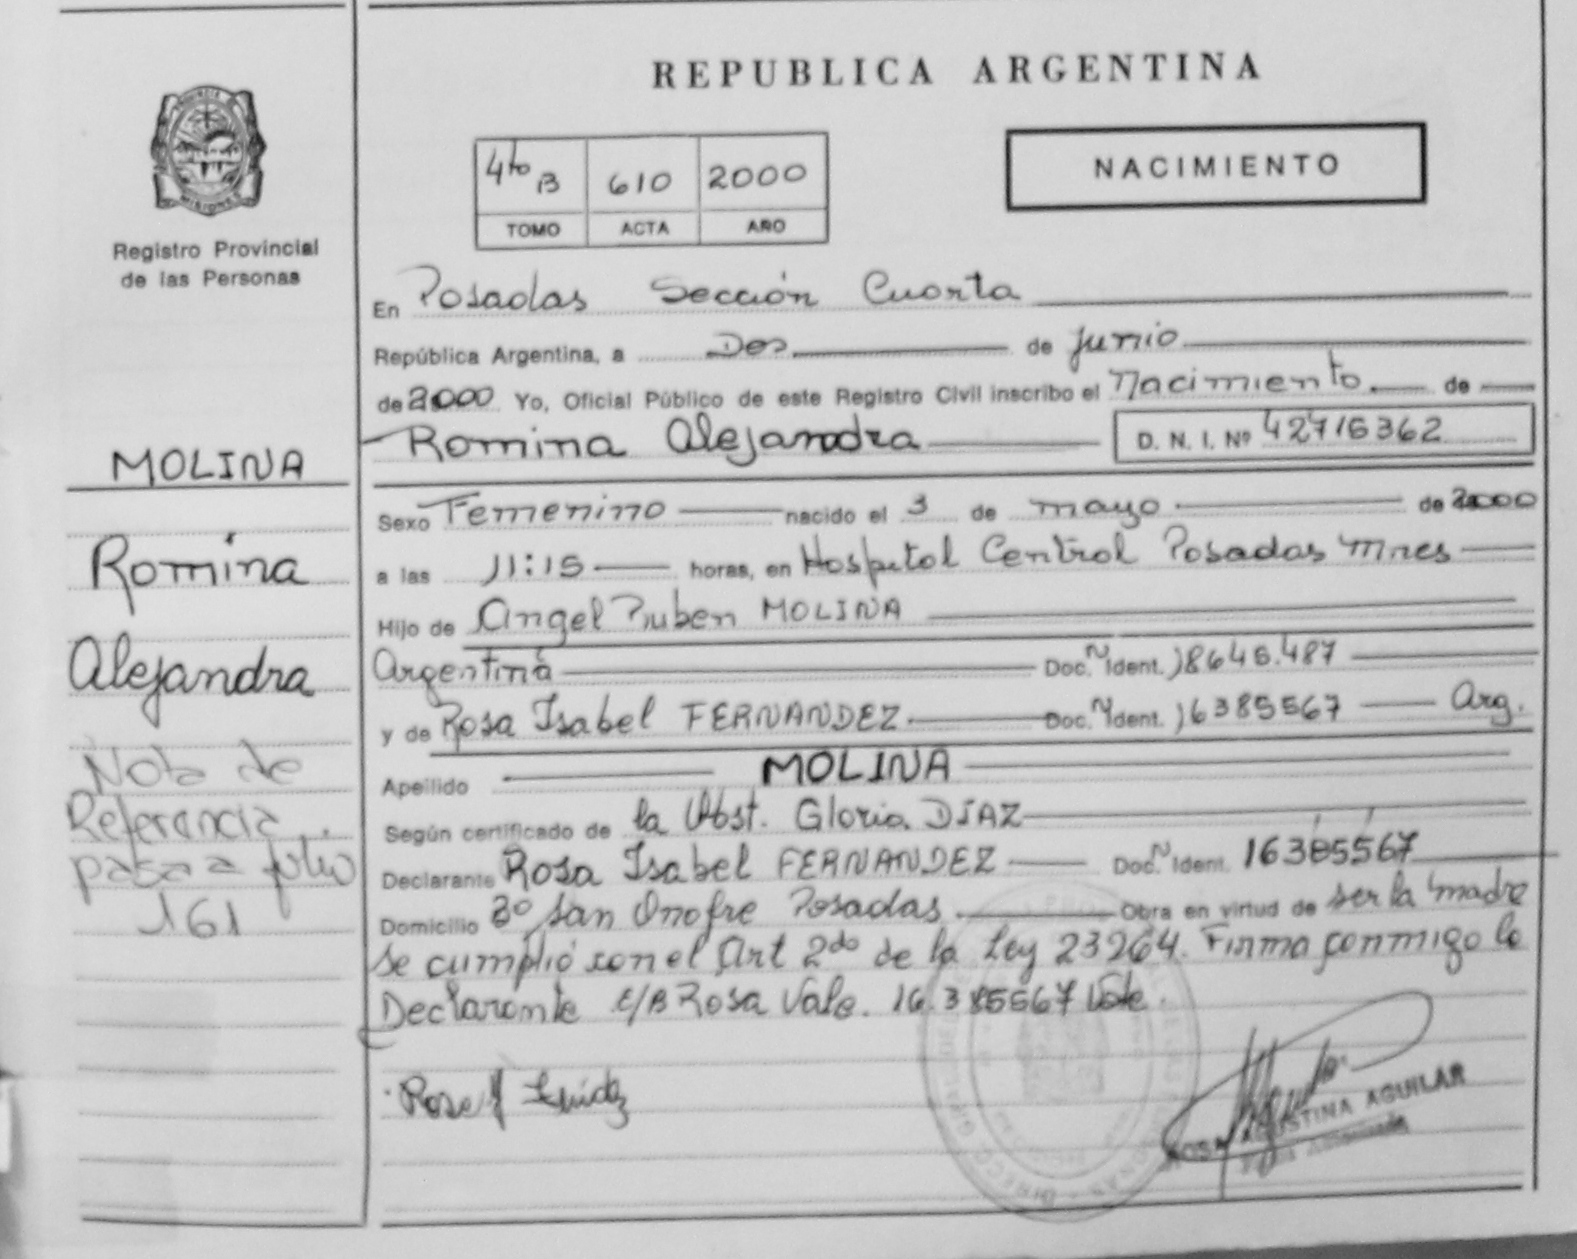 REPUBLICA ARGENTINA
PROVINCIA DE
MISIONES
Registro Provincial
de las Personas
4to B 610 2000
TOMO ACTA AÑO
NACIMIENTO
En Posadas Sección Cuarta
República Argentina, a Dos de junio
de 2000 Yo, Oficial Público de este Registro Civil inscribo el Nacimiento de
Romina Alejandra D. N. I. Nº 42716362
Sexo Femenino nacido el 3 de mayo de 2000
a las 11:15 horas, en Hospital Central Posadas Mnes
Hijo de Angel Ruben MOLINA
Argentina Doc. N Ident. 18645.487
y de Rosa Isabel FERNANDEZ. Doc. N Ident. 16385567 Arg.
Apellido MOLINA
Según certificado de la Obst. Gloria DIAZ
Declarante Rosa Isabel FERNANDEZ Doc. N Ident. 16385567
Domicilio Bº San Onofre Posadas. Obra en virtud de ser la madre
Se cumplió con el Art 2do de la Ley 23264. Firma conmigo la
Declarante E/B Rosa Vale. 16.385567 Vale.
ROSA AGUSTINA AGUILAR
MOLINA
Romina
Alejandra
Nota de
Referencia
pasa a folio
161